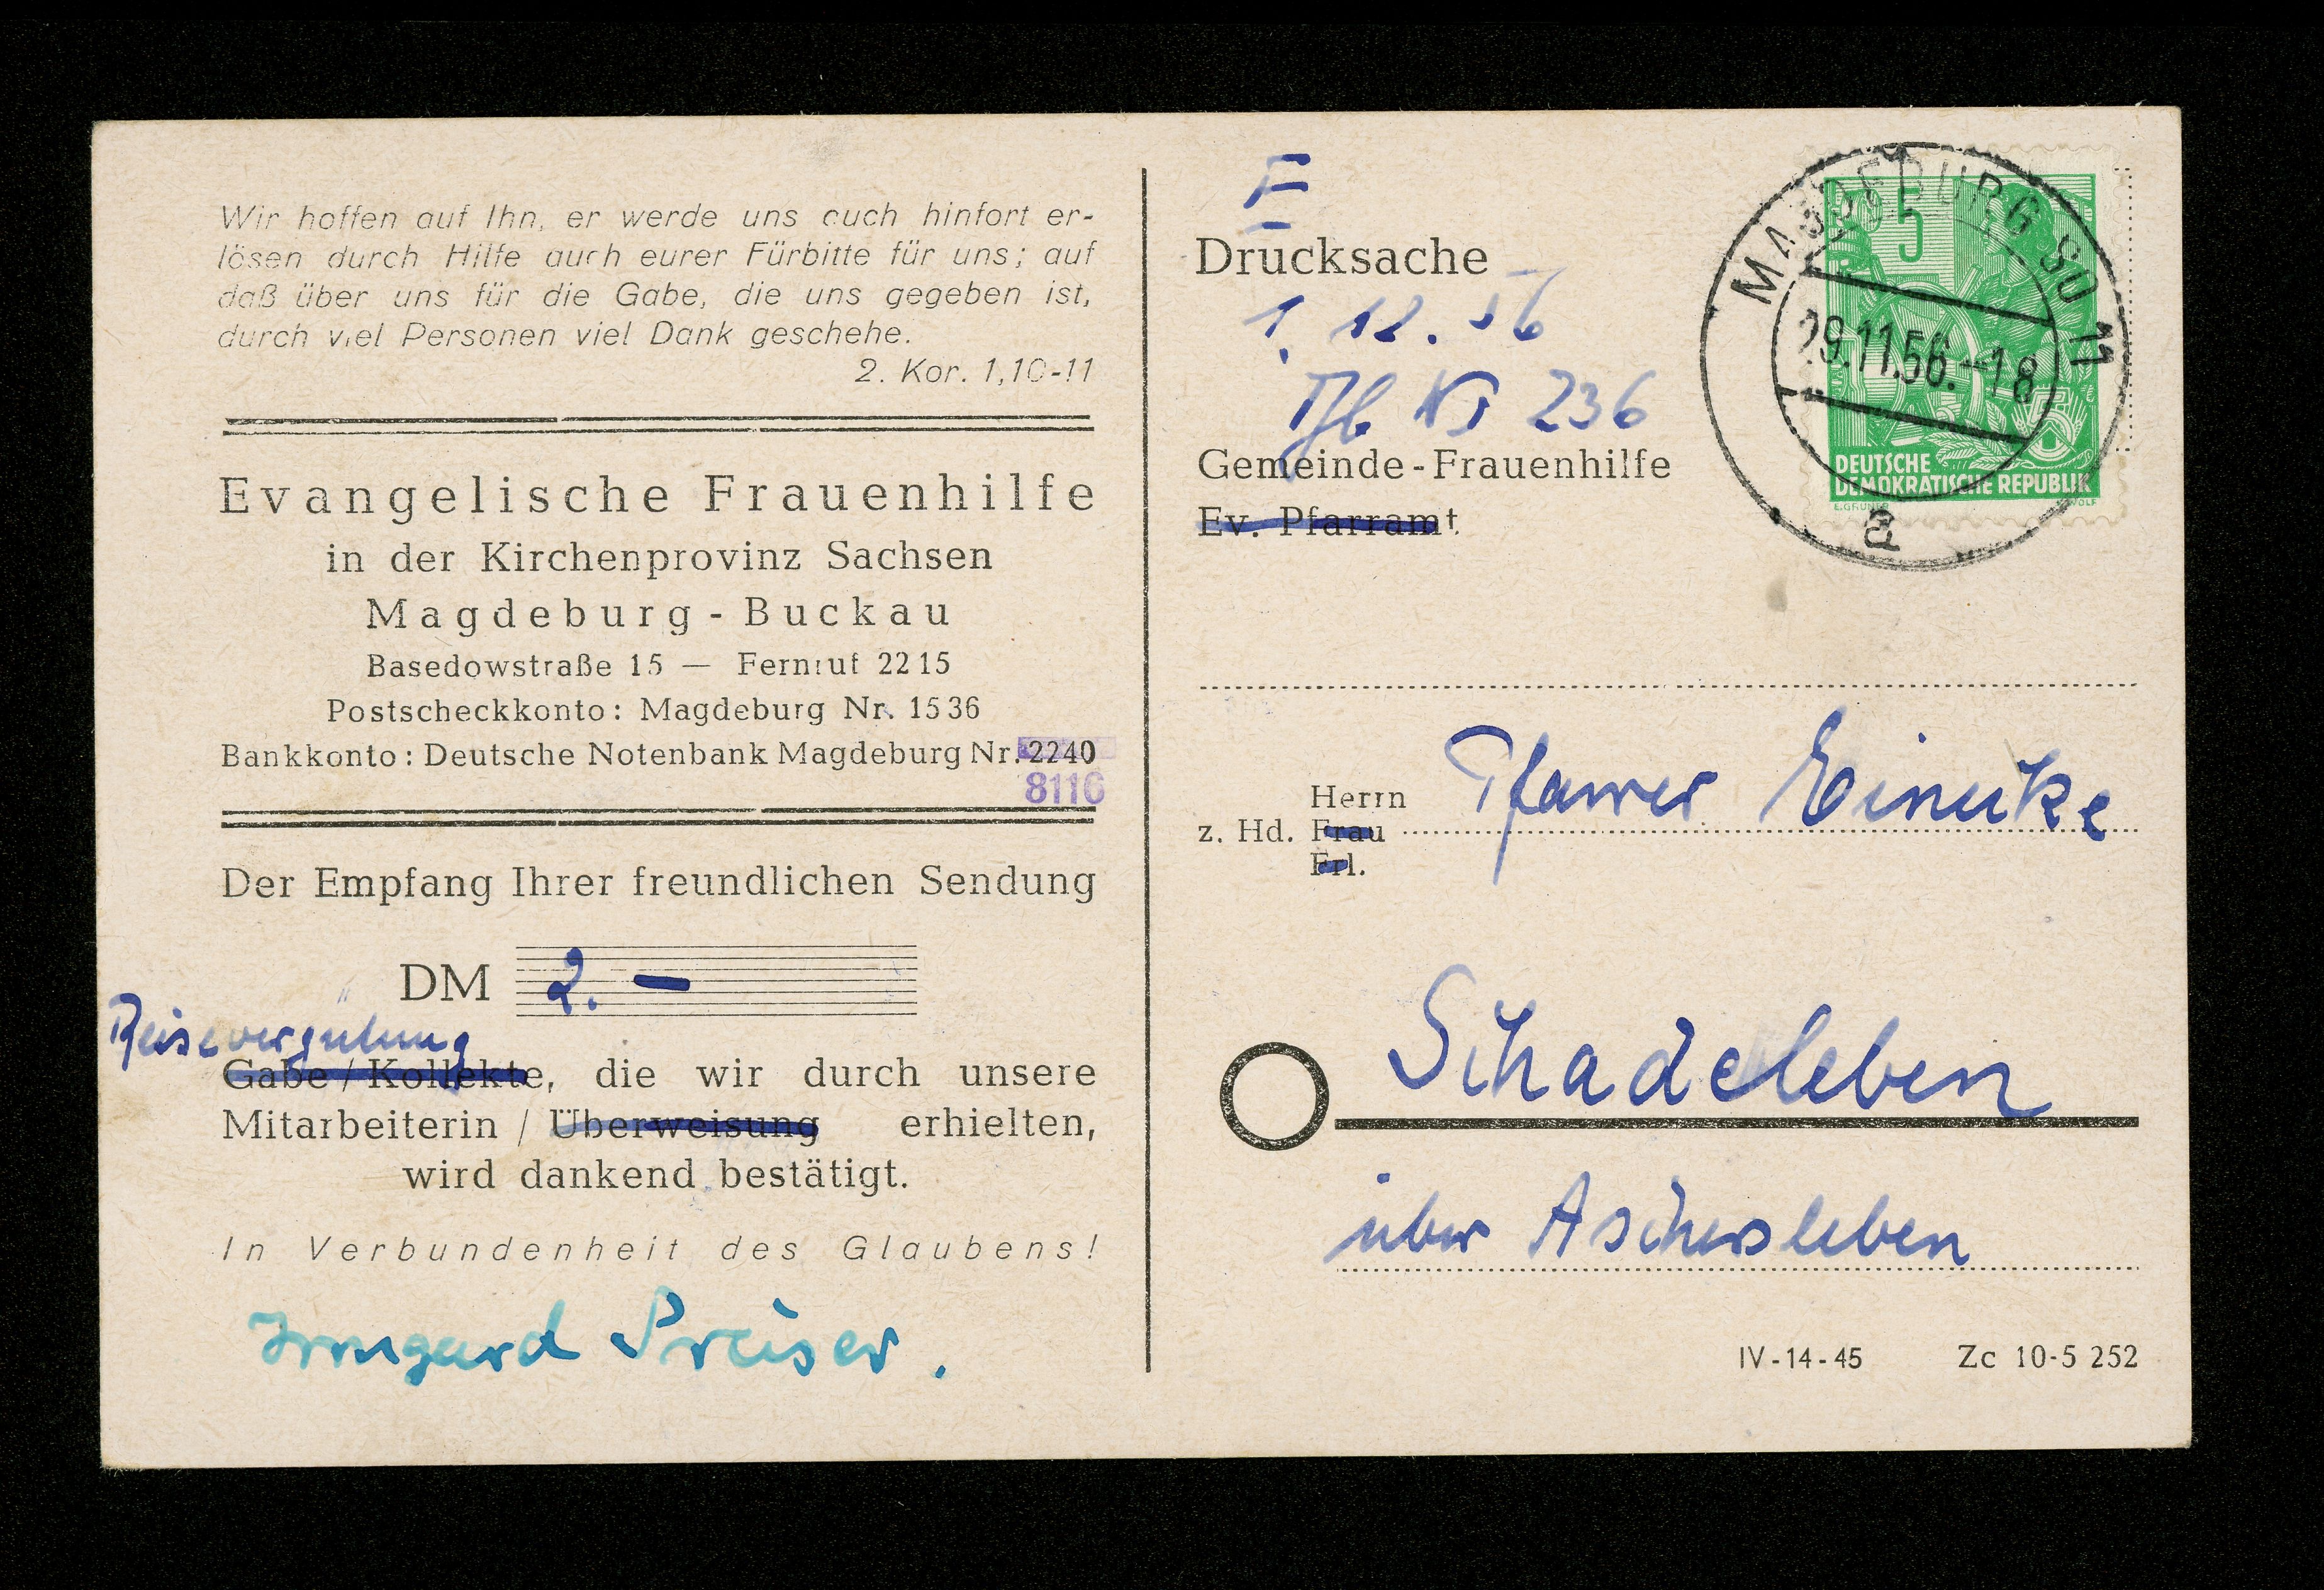 Wir hoffen auf Ihn, er werde uns auch hinfort er-
lösen durch Hilfe auch eurer Fürbitte für uns; auf
daß über uns für die Gabe, die uns gegeben ist,
durch viel Personen viel Dank geschehe.
2. Kor. 1,10-11
Evangelische Frauenhilfe
in der Kirchenprovinz Sachsen
Magdeburg-Buckau
Basedowstraße 15 — Fernruf 2215
Postscheckkonto: Magdeburg Nr. 1536
Bankkonto: Deutsche Notenbank Magdeburg Nr. 2240
8110
Der Empfang Ihrer freundlichen Sendung
DM 2.—
Reisevergütung
Gabe / Kollekte, die wir durch unsere
Mitarbeiterin / Überweisung erhielten,
wird dankend bestätigt.
In Verbundenheit des Glaubens!
Irmgard Preiser.
E
Drucksache
1. 12. 56
Tfb Nr 236
Gemeinde-Frauenhilfe
Ev. Pfarramt
MAGDEBURG SO 11
29.11.56.-18
a
5
DEUTSCHE
DEMOKRATISCHE REPUBLIK
E.GRUNER
WOLF
Herrn Pfarrer Einicke
z. Hd. Frau
Frl.
Schadeleben
über Aschersleben
IV-14-45 Zc 10-5 252